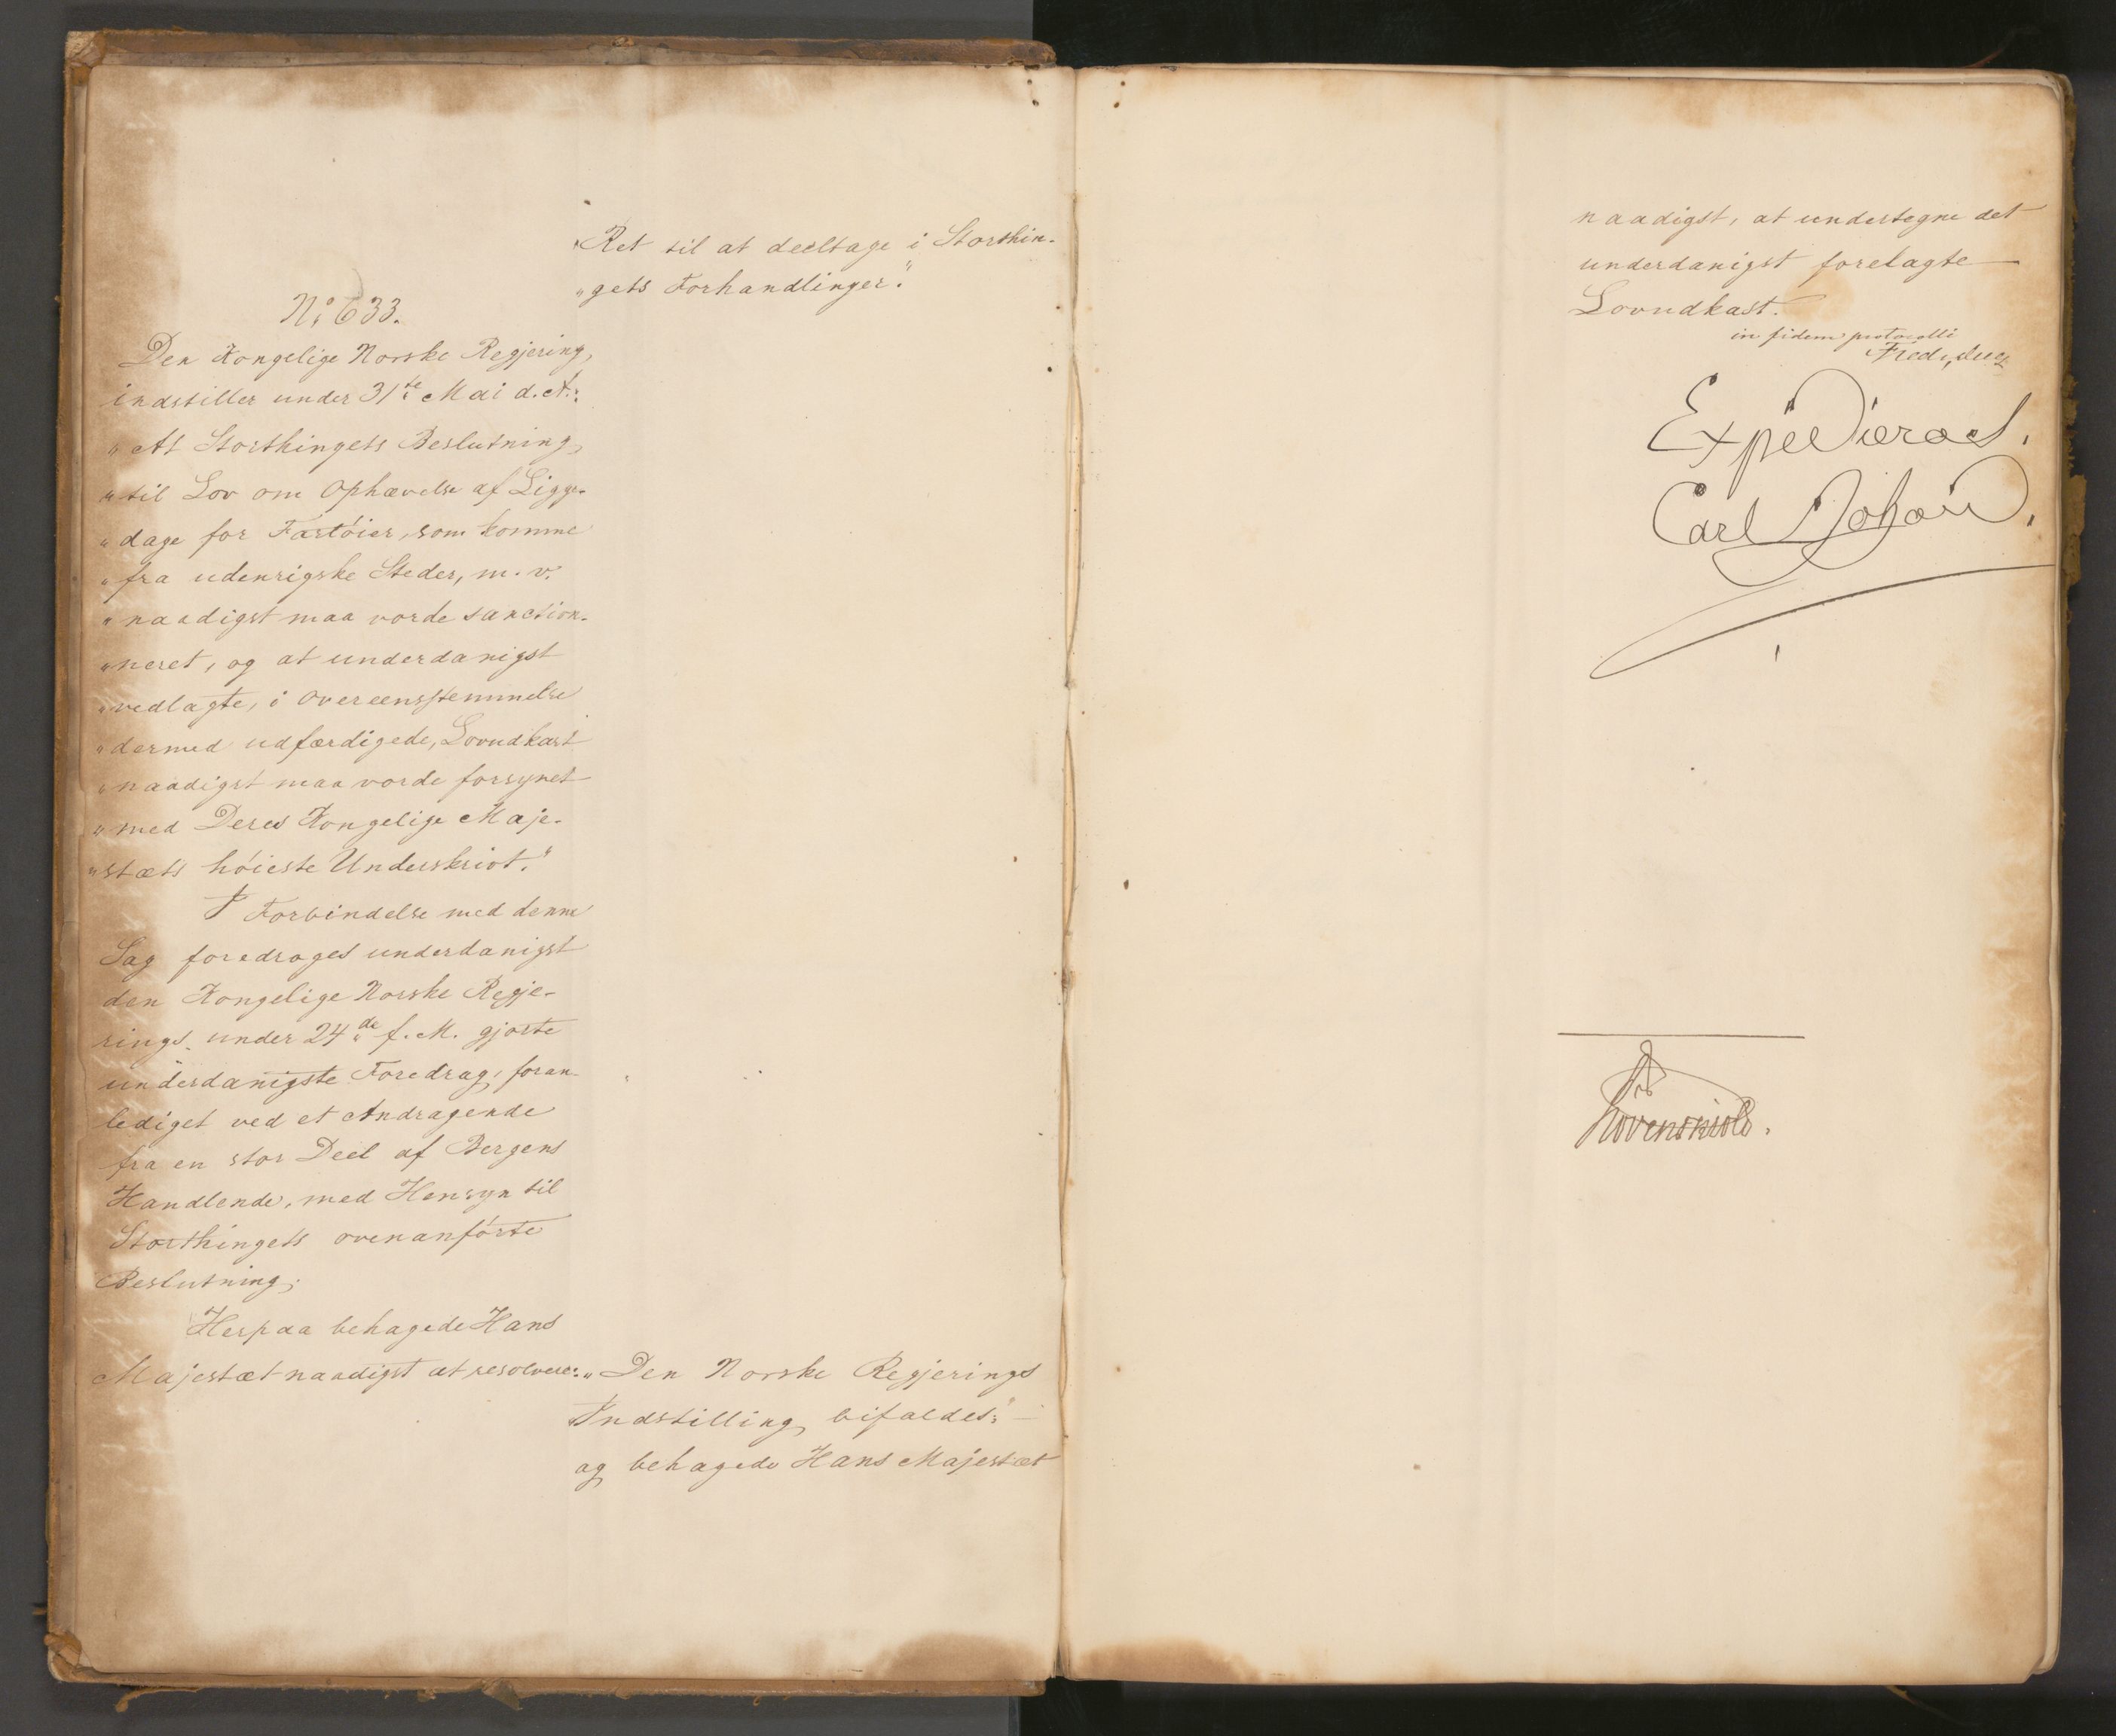 "Ret til at deeltage i Storthin-
"gets Forhandlinger."
No 633.
Den Kongelige Norske Regjering,
indstiller under 31te Mai d. A.:
"At Storthingets Beslutning
"til Lov om Ophævelse af Ligge-
"dage for Fartöier, som komme
"fra udenrigske Steder, m. v.
"naadigst maa vorde sanction-
"neret, og at underdanigst
"vedlagte, i Overeensstemmelse
"dermed udfærdigede, Lovudkast
"naadigst maa vorde forsynet
"med Deres Kongelige Maje-
"stæts höieste Underskrivt."
I Forbindelse med denne
Sag foredroges underdanigst
den Kongelige Norske Regje-
rings under 24de f. M. gjorte
underdanigste Foredrag, foran-
lediget ved et Andragende
fra en stor Deel af Bergens
Handlende, med Hensyn til
Storthingets ovenanförte
Beslutning;
Herpaa behagede Hans
Majestæt naadigst at resolvere:
"Den Norske Regjerings
Indstilling bifaldes;" —
og behagede Hans Majestæt
naadigst, at undertegne det
underdanigst forelagte
Lovudkast.
in fidem protocolli
Fred. Due
Expedieras.
Carl Johan.
Lövenskiold.